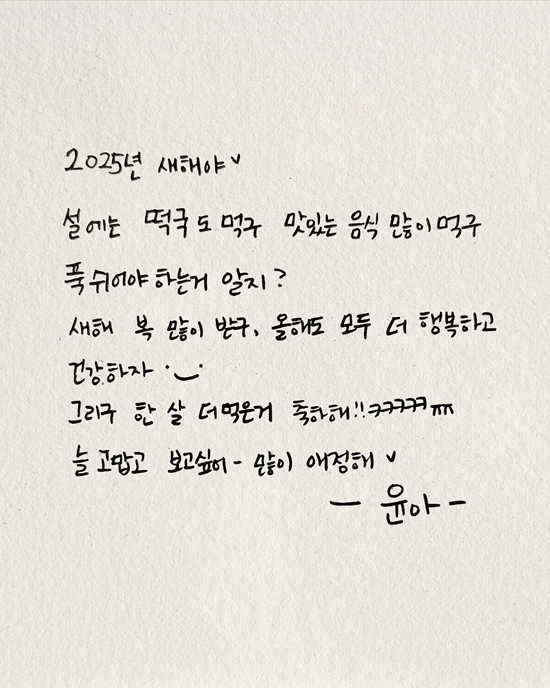 2025년 새해야♥
설에는 떡국도 먹구 맛있는 음식 많이먹구
푹 쉬어야 하는거 알지?
새해 복 많이 받구, 올해도 모두 더 행복하고
건강하자 ·‿·
그리구 한 살 더먹은거 축하해!!ㅋㅋㅋㅋㅋㅠㅠ
늘 고맙고 보고싶어- 많이 애정해 ♥
- 윤아 -